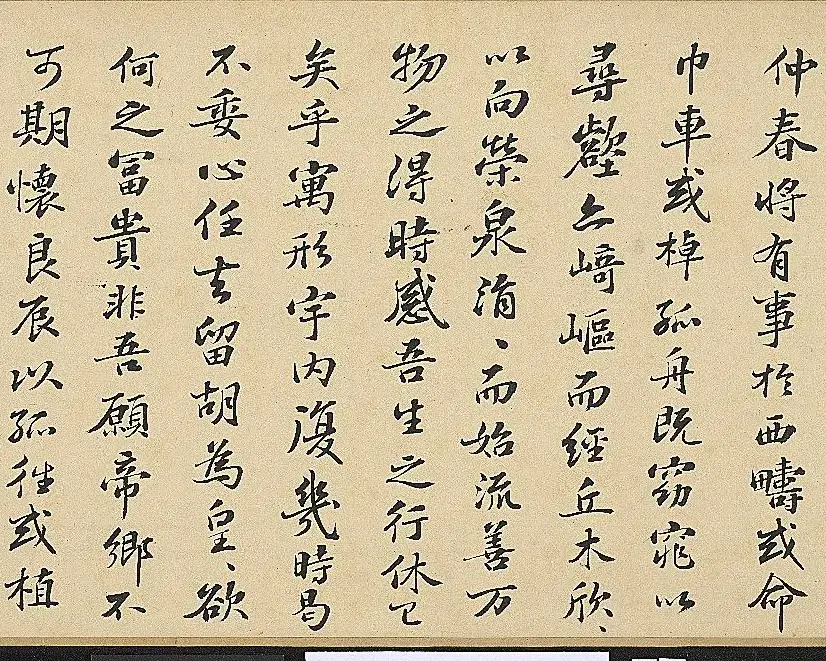 仲春將有事於西疇或命
巾車或棹孤舟既窈窕以
尋壑亦崎嶇而經丘木欣、
以向榮泉涓、而始流善万
物之得時感吾生之行休已
矣乎寓形宇内復幾時曷
不委心任去留胡為皇、欲
何之冨貴非吾願帝鄉不
可期懷良辰以孤往或植